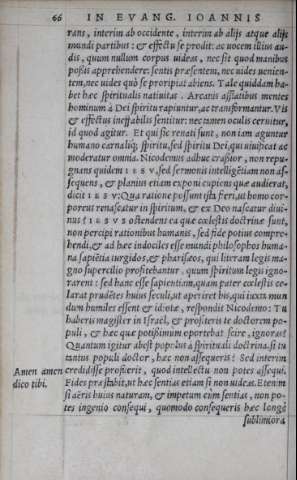 66 IN EVANG. IOANNIS
rans, interim ab occidente, interim ab alijs atque alijs
mundi partibus: & effectu se prodit: ac uocem illius au-
dis, quum nullum corpus uideas, nec sit quod manibus
possit apprehendere: sentis præsentem, nec uides uenien-
tem, nec uides quò se proripiat abiens. Tale quiddam ha-
bet hæc spiritualis natiuitas. Arcanis afflatibus mentes
hominum à Dei spiritu rapiuntur, ac transformantur. Vis
& effectus ineffabilis sentitur: nec tamen oculis cernitur,
id quod agitur. Et qui sic renati sunt, non iam aguntur
humano carnaliq; spiritu, sed spiritu Dei, qui uiuificat ac
moderatur omnia. Nicodemus adhuc crassior, non repu-
gnans quidem IESV, sed sermonis intelligẽtiam non as-
sequens, & planius etiam exponi cupiens quæ audierat,
dicit IESV: Qua ratione possunt ista fieri, ut homo cor-
poreus renascatur in spiritum, & ex Deo nascatur diui-
nus? IESVS ostendens ea quæ cœlestis doctrinæ sunt,
non percipi rationibus humanis, sed fide potius compre-
hendi, & ad hæc indociles esse mundi philosophos huma-
na sapiẽtia turgidos, & pharisæos, qui literam legis ma-
gno supercilio profitebantur, quum spiritum legis igno-
rarent: sed hanc esse sapientiam, quam pater cœlestis ce-
larat prudẽtes huius seculi, ut aperiret his, qui iuxta mun
dum humiles essent & idiotæ, respondit Nicodemo: Tu
haberis magister in Israël, & profiteris te doctorem po-
puli, & hæc quæ potissimum oportebat scire, ignoras?
Quantum igitur abest populus à spirituali doctrina, si tu
tantus populi doctor, hæc non assequeris? Sed interim
Amen amen credidisse profuerit, quod intellectu non potes assequi.
dico tibi. Fides præstabit, ut hæc sentias etiam si non uideas. Etenim
si aëris huius naturam, & impetum cùm sentias, non po-
tes ingenio consequi, quomodo consequeris hæc longè
sublimiora